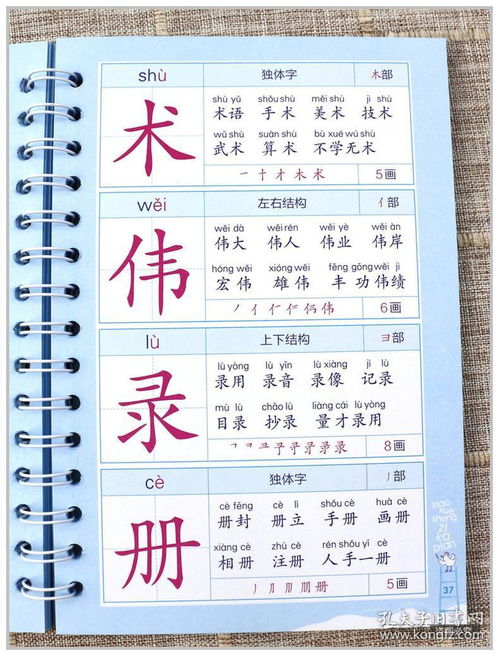 shù 独体字 木部
术
shù yǔ shǒu shù měi shù jì shù
术语 手术 美术 技术
wǔ shù suàn shù bù xué wú shù
武术 算术 不学无术
一 十 才 木 术 5画
wěi 左右结构 亻部
伟
wěi dà wěi rén wěi yè wěi àn
伟大 伟人 伟业 伟岸
hóng wěi xióng wěi fēng gōng wěi jì
宏伟 雄伟 丰功伟绩
6画
lù 上下结构 彐部
录
lù yòng lù yīn lù xiàng jì lù
录用 录音 录像 记录
mù lù chāo lù liàng cái lù yòng
目录 抄录 量才录用
8画
cè 独体字 丿部
册
cè fēng cè lì shǒu cè huà cè
册封 册立 手册 画册
xiàng cè zhù cè rén shǒu yī cè
相册 注册 人手一册
5画
xiao
xue
sheng
zi
ka
pian
37
孔夫子旧书网
www.kongfz.com